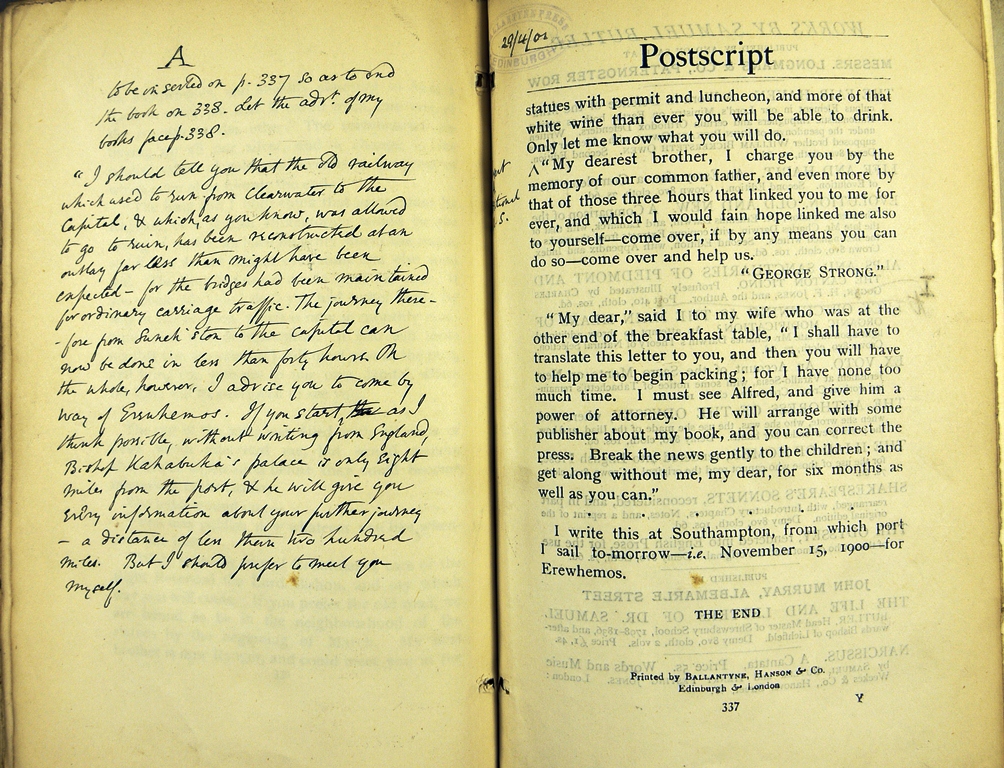 A
to be inserted on p. 337 so as to end
the book on 338. Let the advt. of my
books face p. 338.
"I should tell you that the old railway
which used to run from Clearwater to the
Capital, & which, as you know, was allowed
to go to ruin, has been reconstructed at an
outlay far less than might have been
expected – for the bridges had been maintained
for ordinary carriage traffic. The journey there-
-fore from Sunch'ston to the capital can
now be done in less than forty hours. On
the whole, however, I advise you to come by
way of Erewhemos. If you start, as I
think possible, without writing from England,
Bishop Kahabuka's palace is only eight
miles from the port, & he will give you
every information about your further journey
– a distance of less than two hundred
miles. But I should prefer to meet you
myself.
29/4/01
BALLANTYNE PRESS
EDINBURGH
Postscript
statues with permit and luncheon, and more of that
white wine than ever you will be able to drink.
Only let me know what you will do.
"My dearest brother, I charge you by the
memory of our common father, and even more by
that of those three hours that linked you to me for
ever, and which I would fain hope linked me also
to yourself—come over, if by any means you can
do so—come over and help us.
"GEORGE STRONG."
"My dear," said I to my wife who was at the
other end of the breakfast table, "I shall have to
translate this letter to you, and then you will have
to help me to begin packing; for I have none too
much time. I must see Alfred, and give him a
power of attorney. He will arrange with some
publisher about my book, and you can correct the
press. Break the news gently to the children; and
get along without me, my dear, for six months as
well as you can."
. . . . .
I write this at Southampton, from which port
I sail to-morrow—i.e. November 15, 1900—for
Erewhemos.
THE END
Printed by BALLANTYNE, HANSON & Co.
Edinburgh & London
337
Y